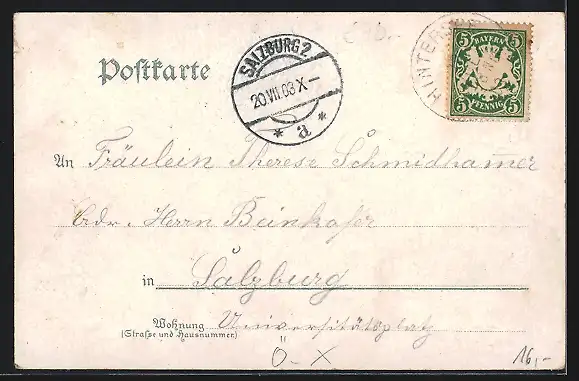 Postkarte
SALZBURG 2
20 VII. 03 X–
* a *
HINTERS
5 BAYERN 5
5 PFENNIG 5
An Fräulein Therese Schmidham̅er
Adr. Herrn Beinkofer
in Salzburg
Wohnung Universitätsplatz
(Strasse und Hausnummer)
Ö - X
16,-